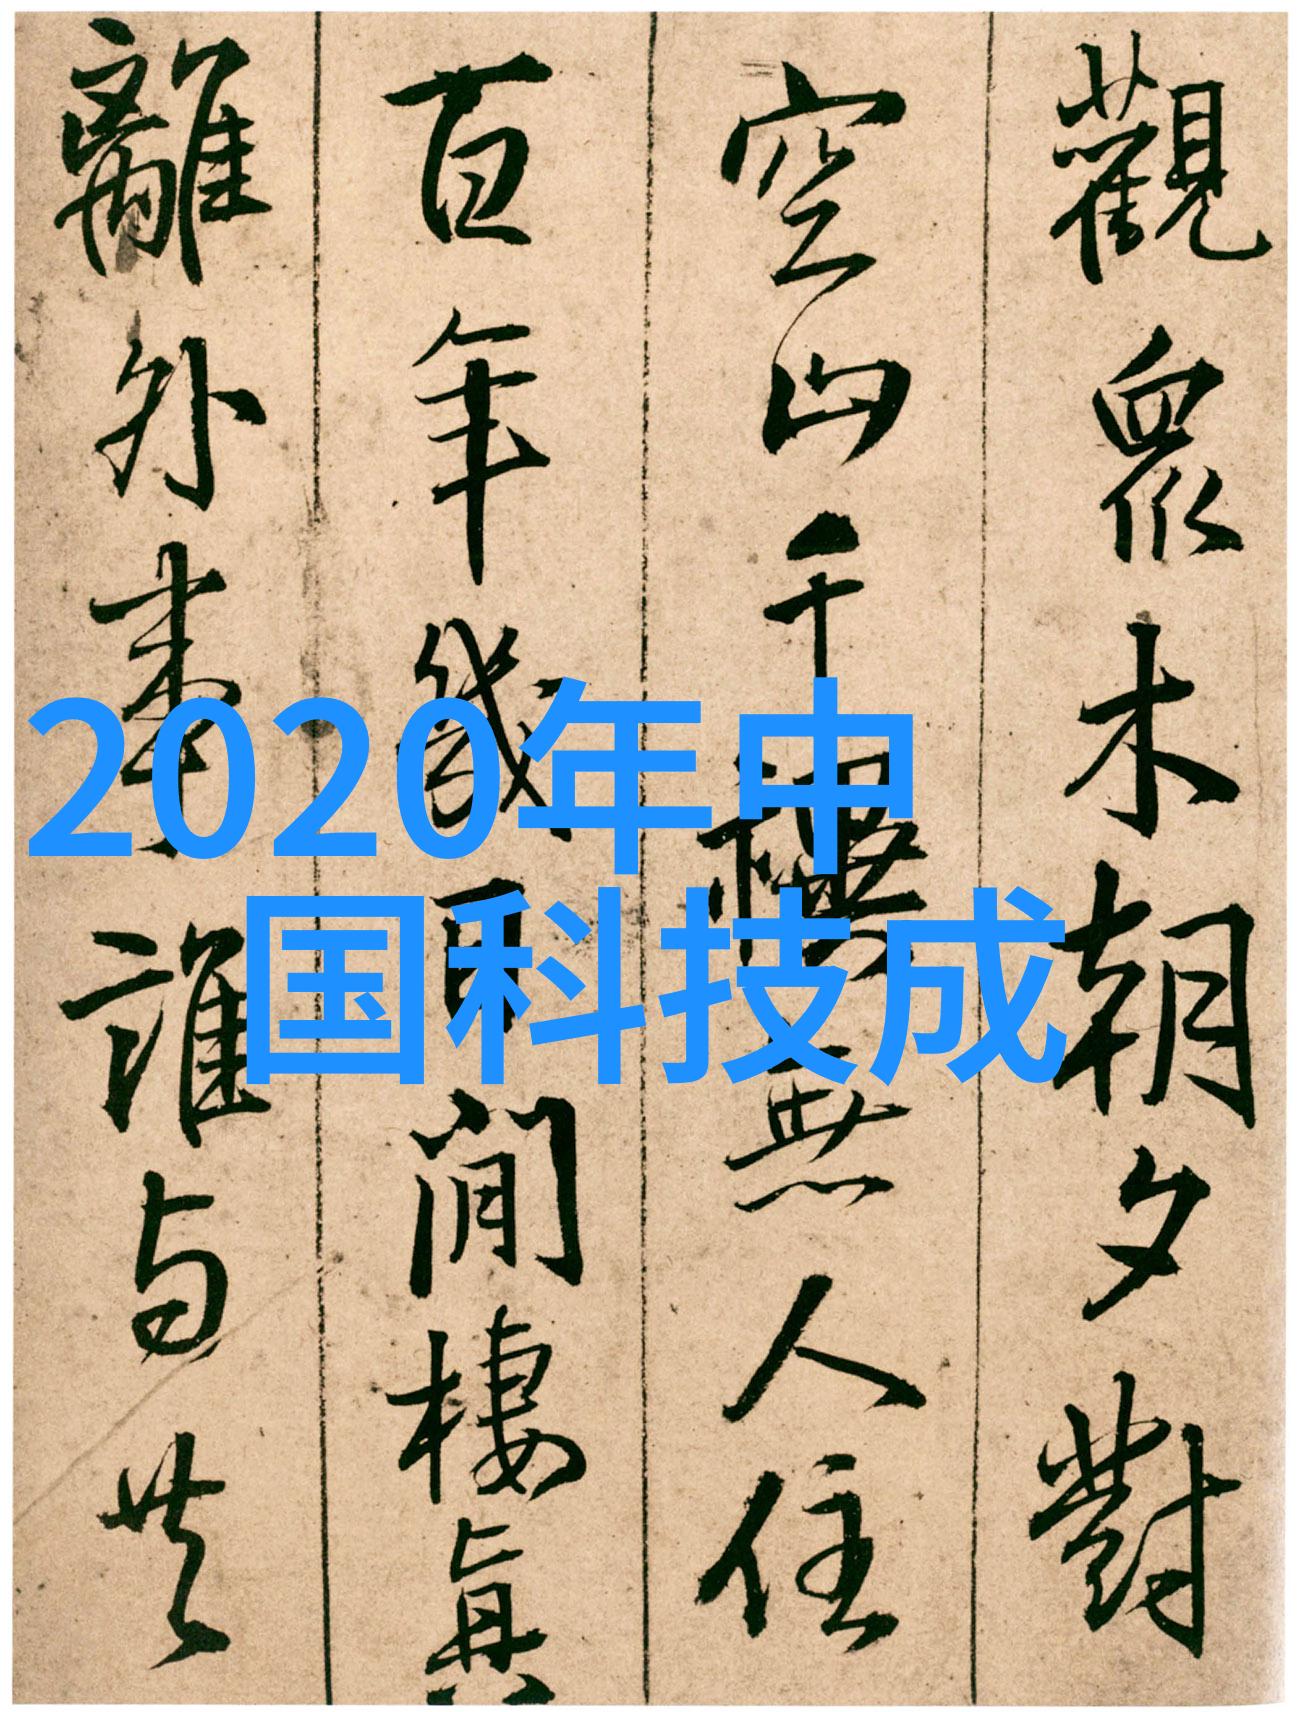 觀眾木朝夕對
空山千無人住
百年幾閒棲真
離外事誰与共
2020年中
国科技成